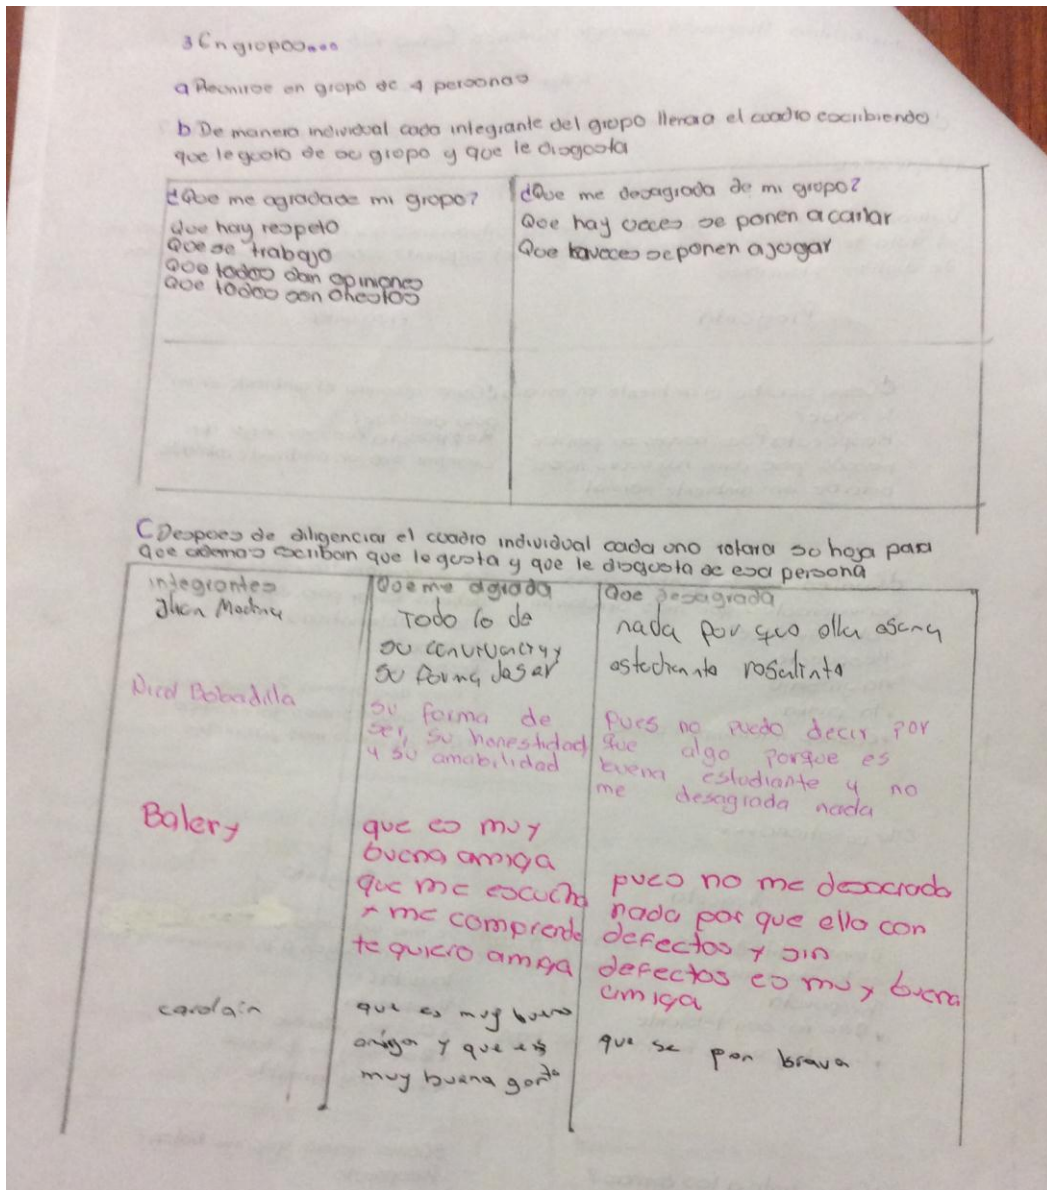 3 En gropos...
a Reonirse en gropo de 4 personas
b De manera individual cada integrante del gropo llenara el cuadro escribiendo
que le gusto de su gropo y que le disgosta
¿Que me agradade mi gropo?
Que hay respeto
Que se trabajo
Que todos dan opiniones
Que todos son onestos
¿Que me desagrada de mi gropo?
Que hay veces se ponen a carlar
Que haveces se ponen a jogar
C Despoes de diligenciar el cuadro individual cada uno rotara so hoja para
que ademas escriban que le gusta y que le disgusta de esa persona
integrantes
Que me agrada
Que desagrada
Jhon
Todo lo de
su
su forma de ser
nada por
Nicol Bobadilla
su forma de
ser, su honestidad
y su amabilidad
Pues no puedo decir por
que algo porque es
buena estudiante y no
me desagrada nada
Balery
que es muy
buena amiga
que me escucha
y me comprende
te quiero amiga
pues no me desagrada
nada por que ella con
defectos y sin
defectos es muy buena
amiga
carolain
que es muy buena
amiga y que es
muy buena gente
que se pon brava